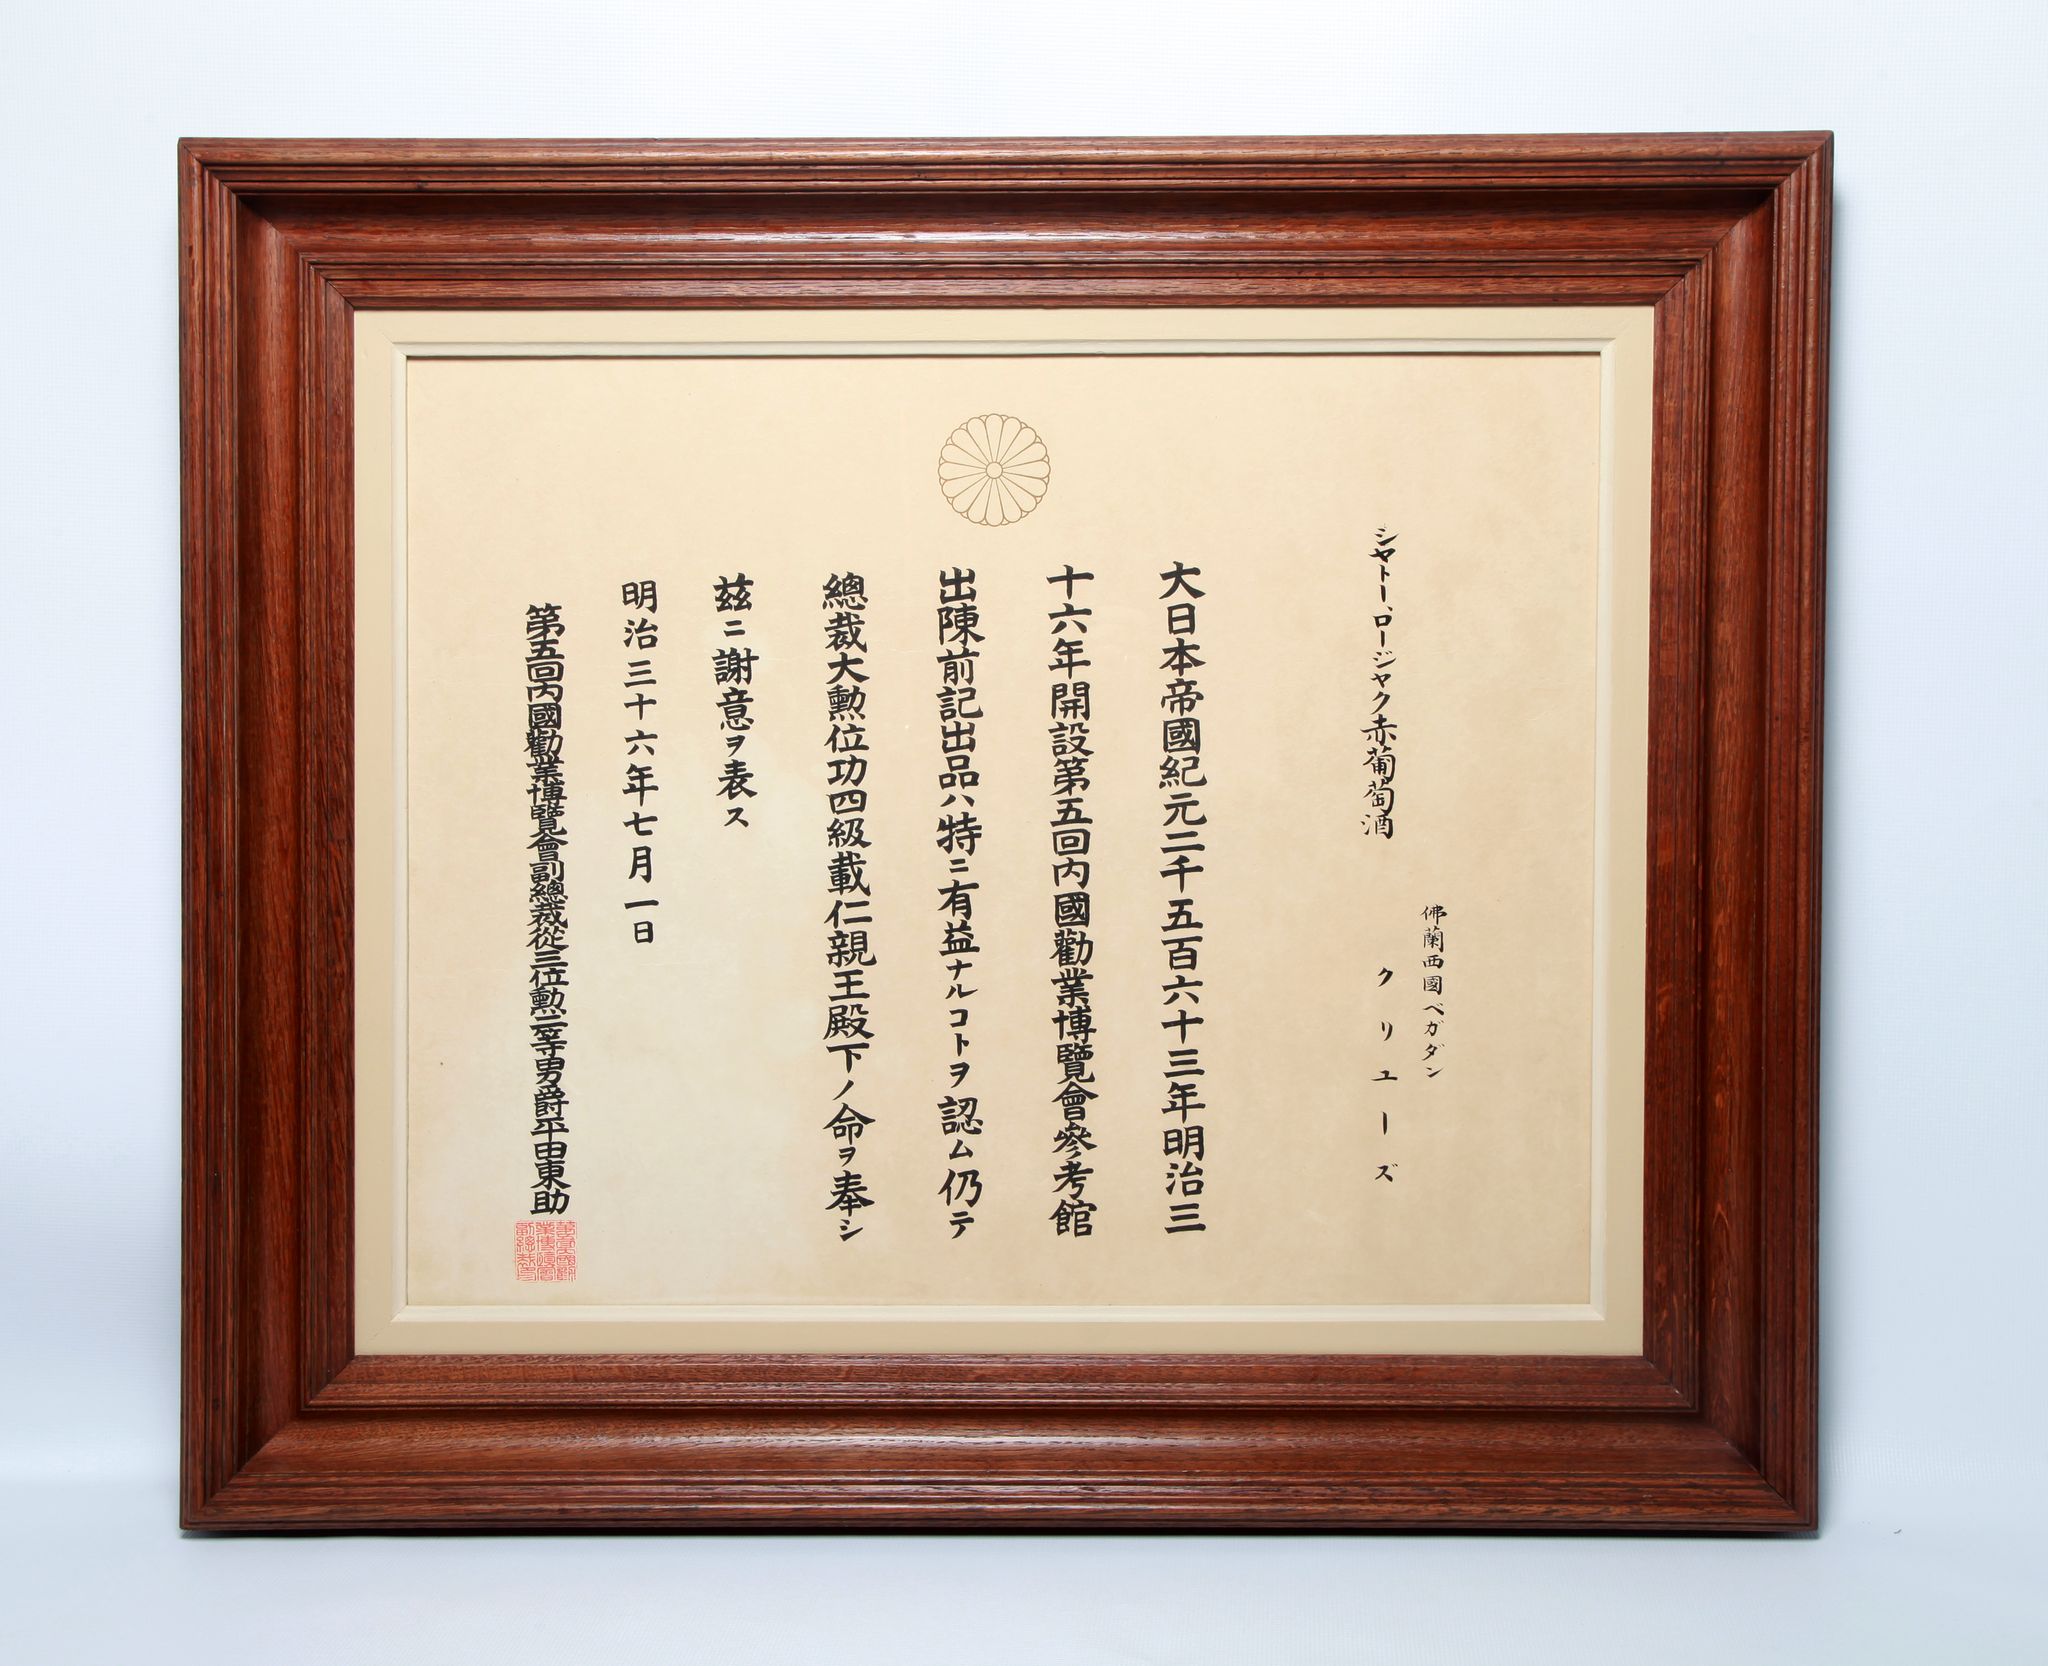 佛蘭西國ベガダン
クリユーズ
シャトー、ロージャク赤葡萄酒
大日本帝國紀元二千五百六十三年明治三
十六年開設第五回内國勸業博覽會參考館
出陳前記出品ハ特ニ有益ナルコトヲ認ム仍テ
總裁大勲位功四級載仁親王殿下ノ命ヲ奉シ
茲ニ謝意ヲ表ス
明治三十六年七月一日
第五回内國勸業博覽會副總裁從三位勲二等男爵平田東助